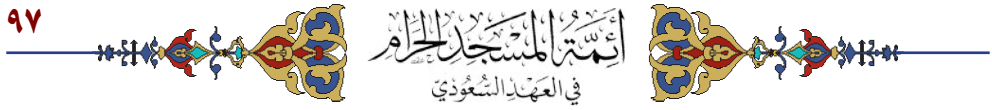 ٩٧
أَئِمَّةُ المَسْجِدِ الحَرَامِ
فِي العَهْدِ السُّعُودِيّ